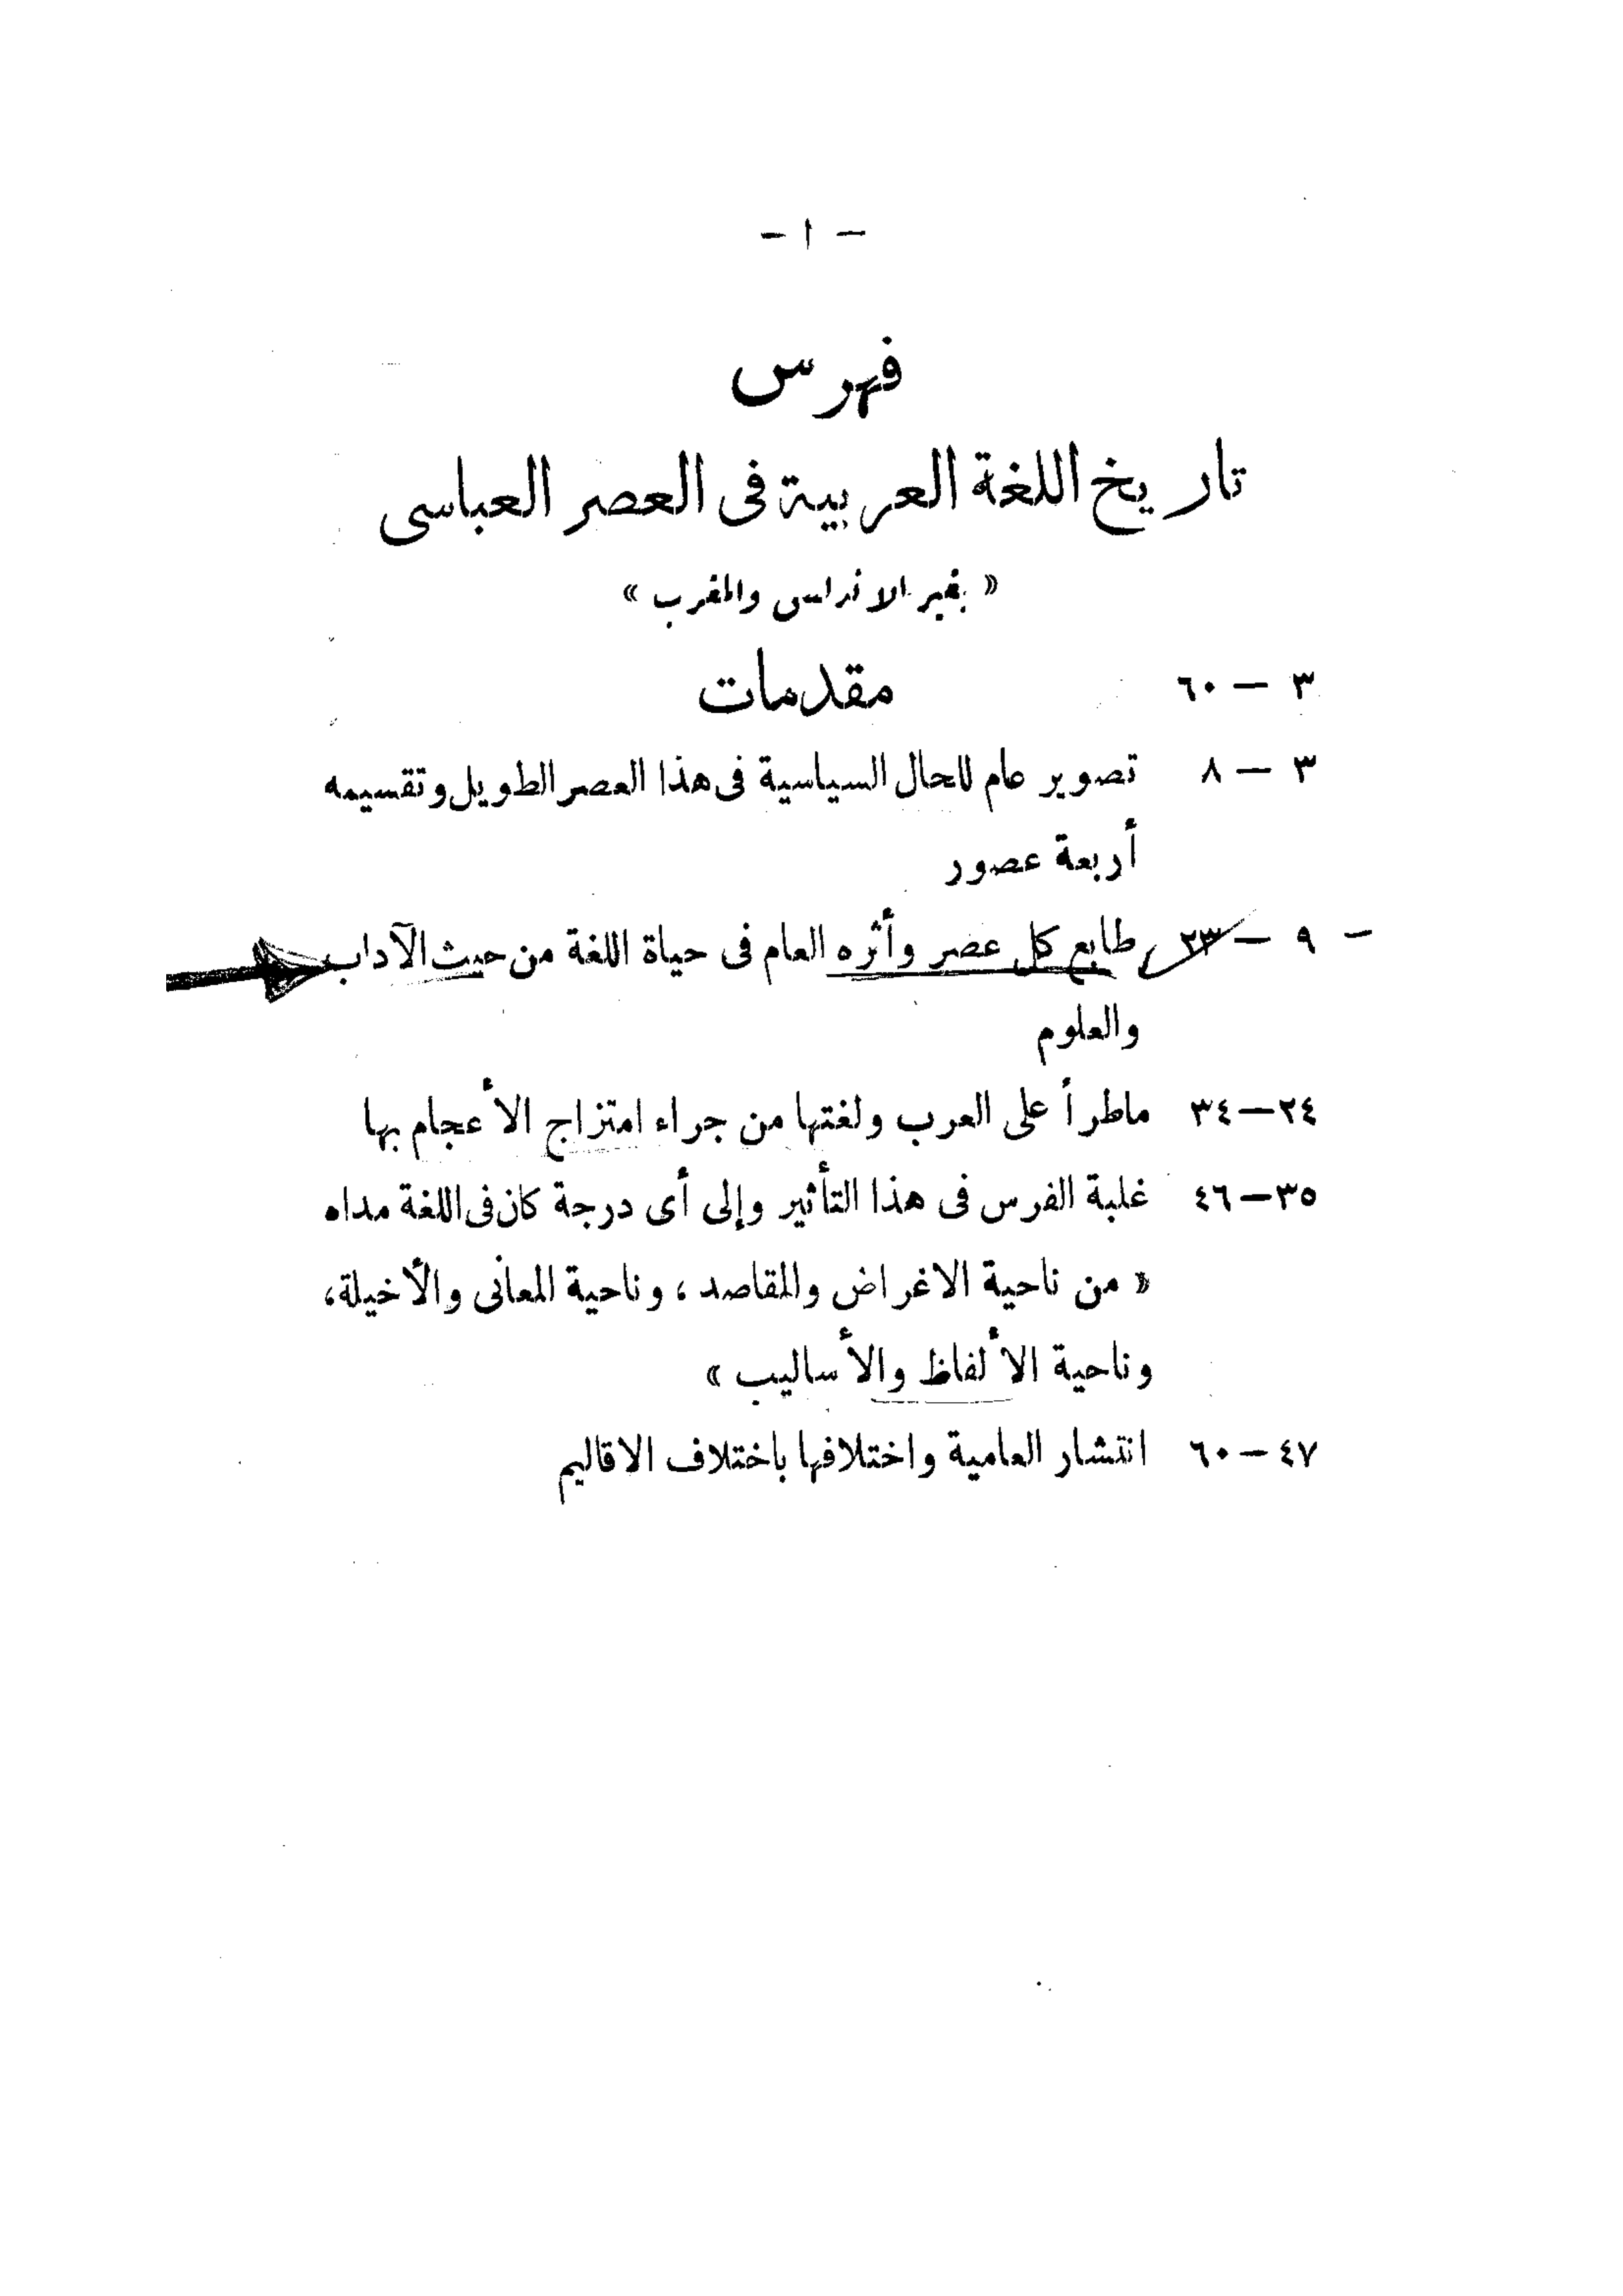 — ١ —
فهرس
تاريخ اللغة العربية فى العصر العباسى
« بغير الاندلس والمغرب »
٣ — ٦٠ مقدمات
٣ — ٨ تصوير عام للحال السياسية فى هذا العصر الطويل وتقسيمه
أربعة عصور
- ٩ — ٢٣ طابع كل عصر وأثره العام فى حياة اللغة من حيث الآداب
والعلوم
٢٤—٣٤ ماطرأ على العرب ولغتها من جراء امتزاج الأعجام بها
٣٥—٤٦ غلبة الفرس فى هذا التأثير وإلى أى درجة كان فى اللغة مداه
« من ناحية الاغراض والمقاصد ، وناحية المعانى والأخيلة ،
وناحية الألفاظ والأساليب »
٤٧—٦٠ انتشار العامية واختلافها باختلاف الاقاليم